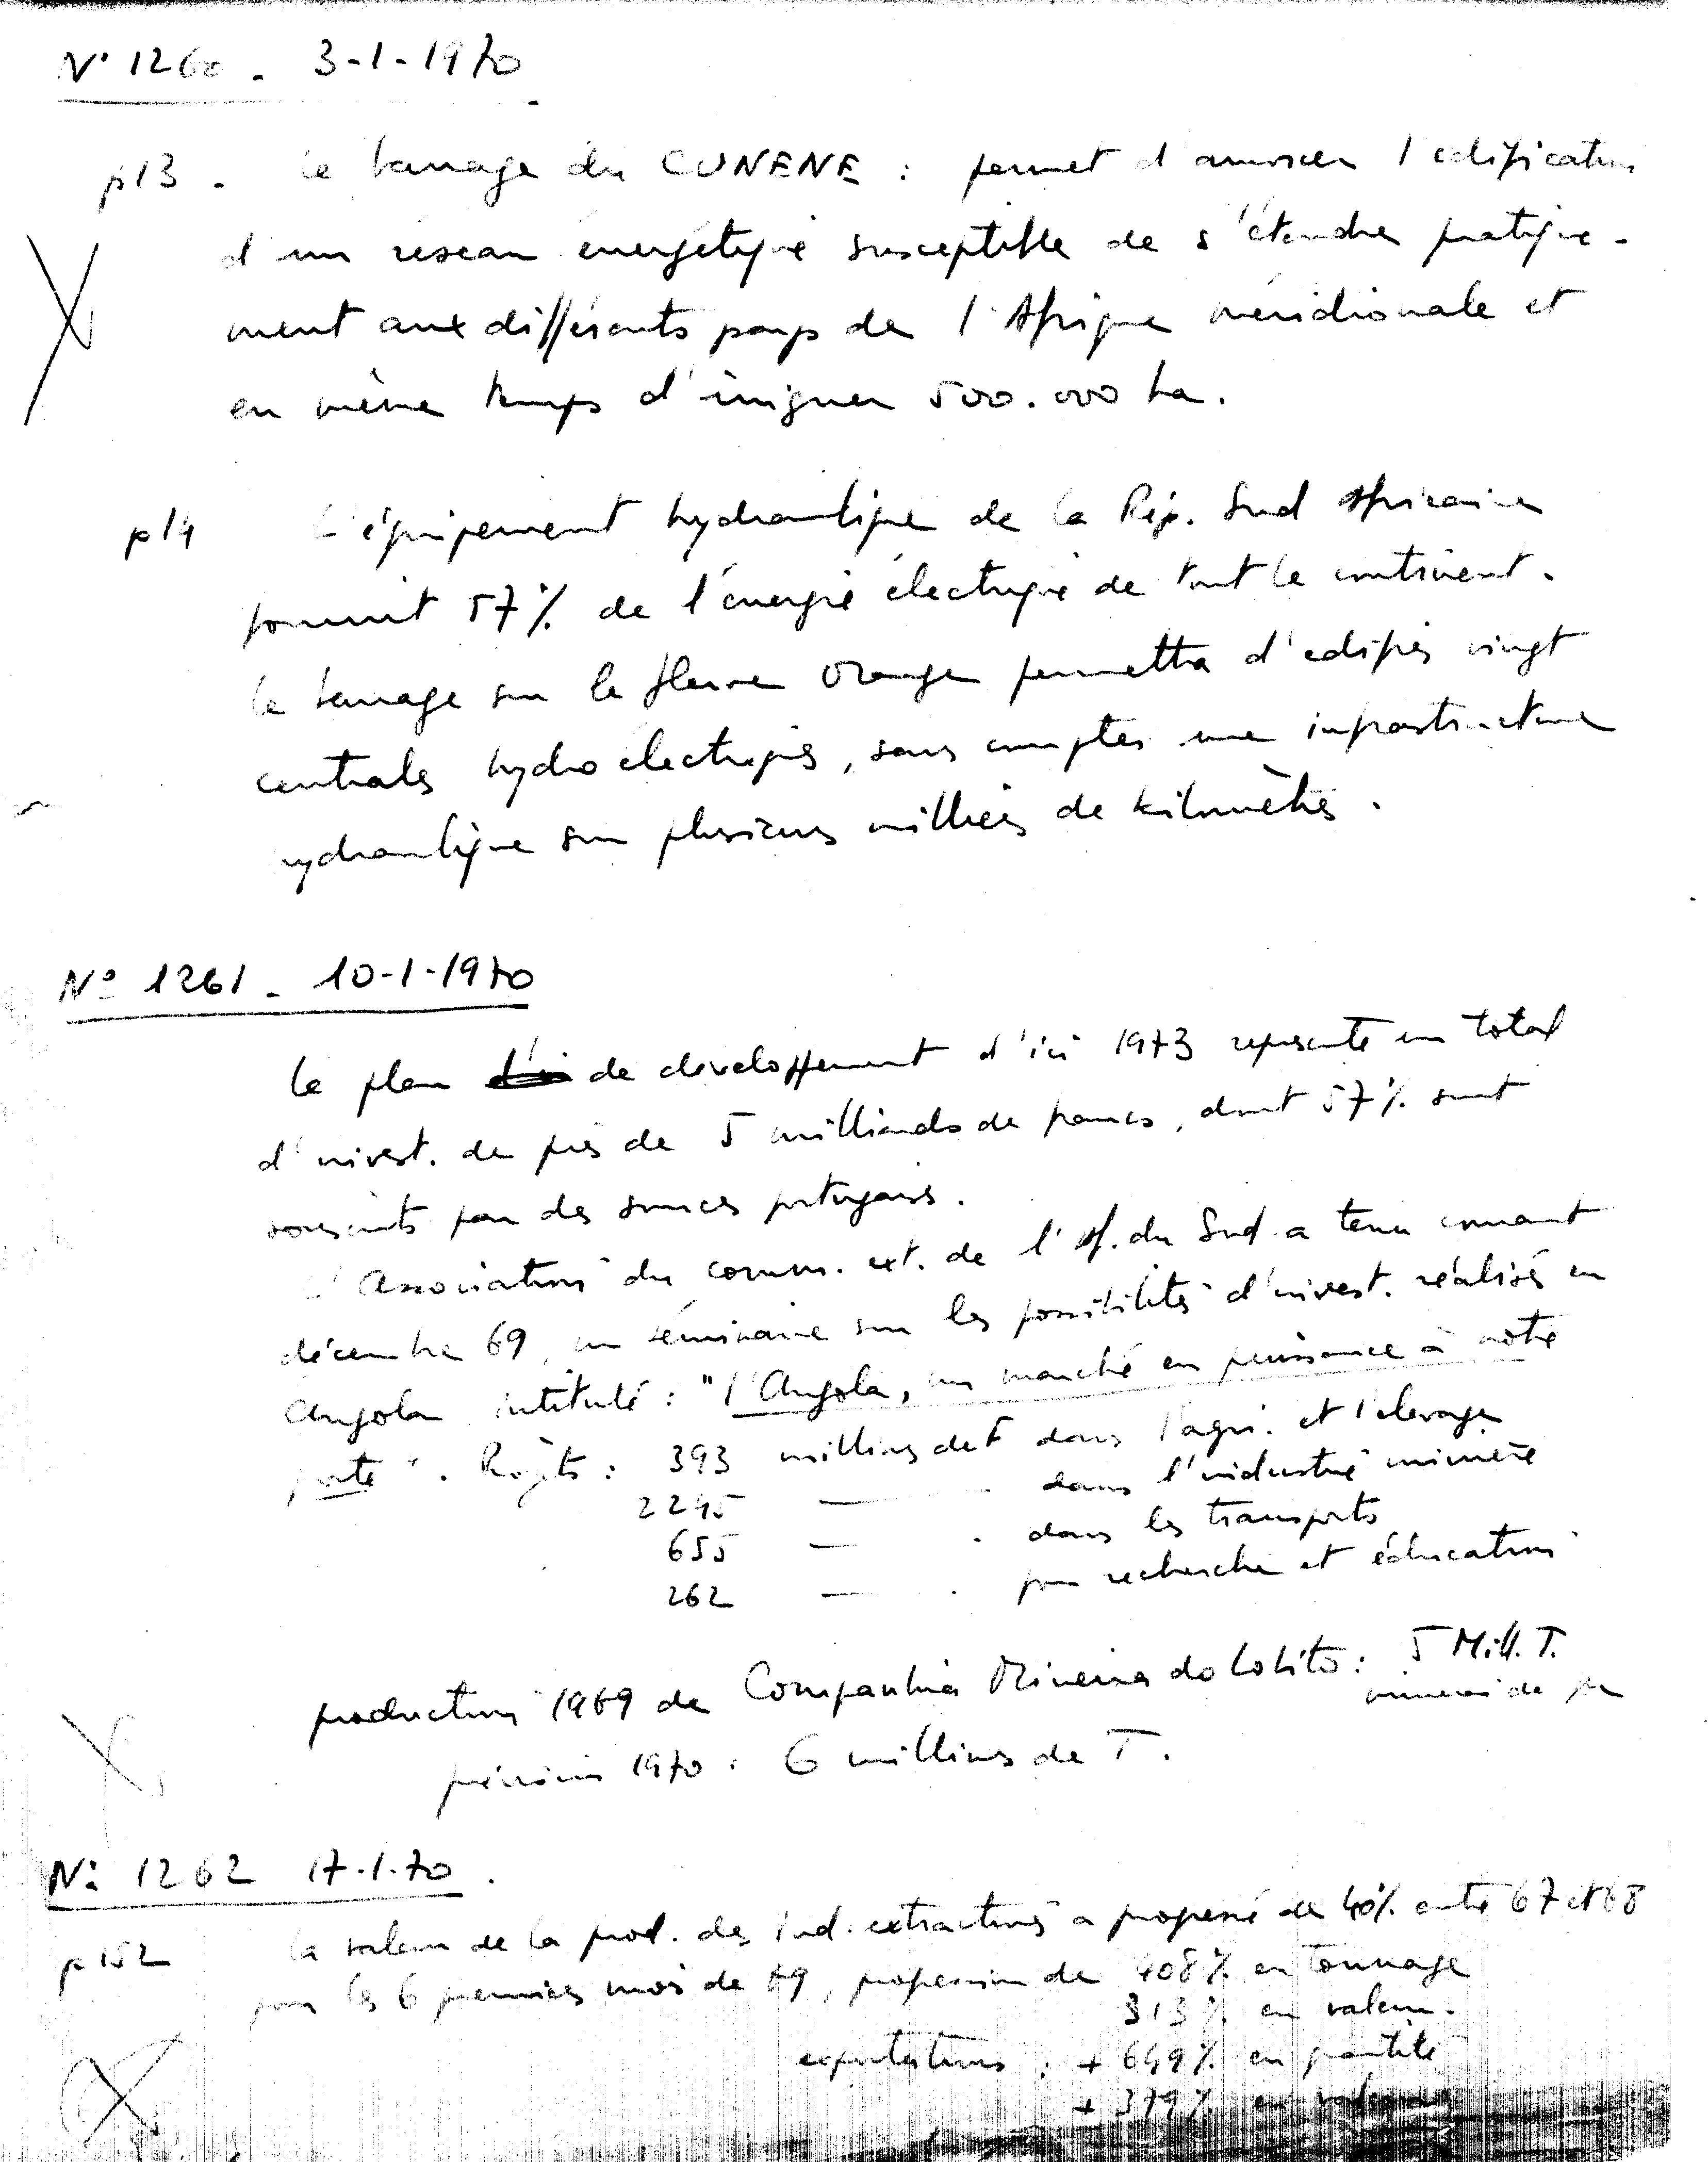 N° 1260 - 3-1-1970
p13 - Le barrage du CUNENE : permet d'amorcer l'édification
d'un réseau énergétique susceptible de s'étendre pratique-
ment aux différents pays de l'Afrique méridionale et
en même temps d'irriguer 500.000 ha.
p14 L'équipement hydraulique de la Rép. Sud Africaine
fournit 57% de l'énergie électrique de tout le continent.
Le barrage sur le fleuve Orange permettra d'édifier vingt
centrales hydroélectriques, sans compter une infrastructure
hydraulique sur plusieurs milliers de kilomètres.
N° 1261 - 10-1-1970
Le plan de développement d'ici 1973 représente un total
d'invest. de près de 5 milliards de francs, dont 57% sont
souscrits par des sources portugaises.
L'Association du comm. ext. de l'Af. du Sud a tenu courant
décembre 69, un séminaire sur les possibilités d'invest. réalisés en
Angola intitulé : "l'Angola, un marché en puissance à notre
porte". Projets : 393 millions de F dans l'agri. et l'élevage
2245 — dans l'industrie minière
655 — dans les transports
262 — pour recherche et éducation
production 1969 de Companhia Mineira do Lobito : 5 Mill. T.
minerai de fer
prévision 1970 : 6 millions de T.
N° 1262 17.1.70.
p 152 La valeur de la prod. des ind. extractives a progressé de 40% entre 67 et 68
pour les 6 premiers mois de 69, progression de 408% en tonnage
313% en valeur.
exportations : + 649% en quantité
+ 379% en valeur